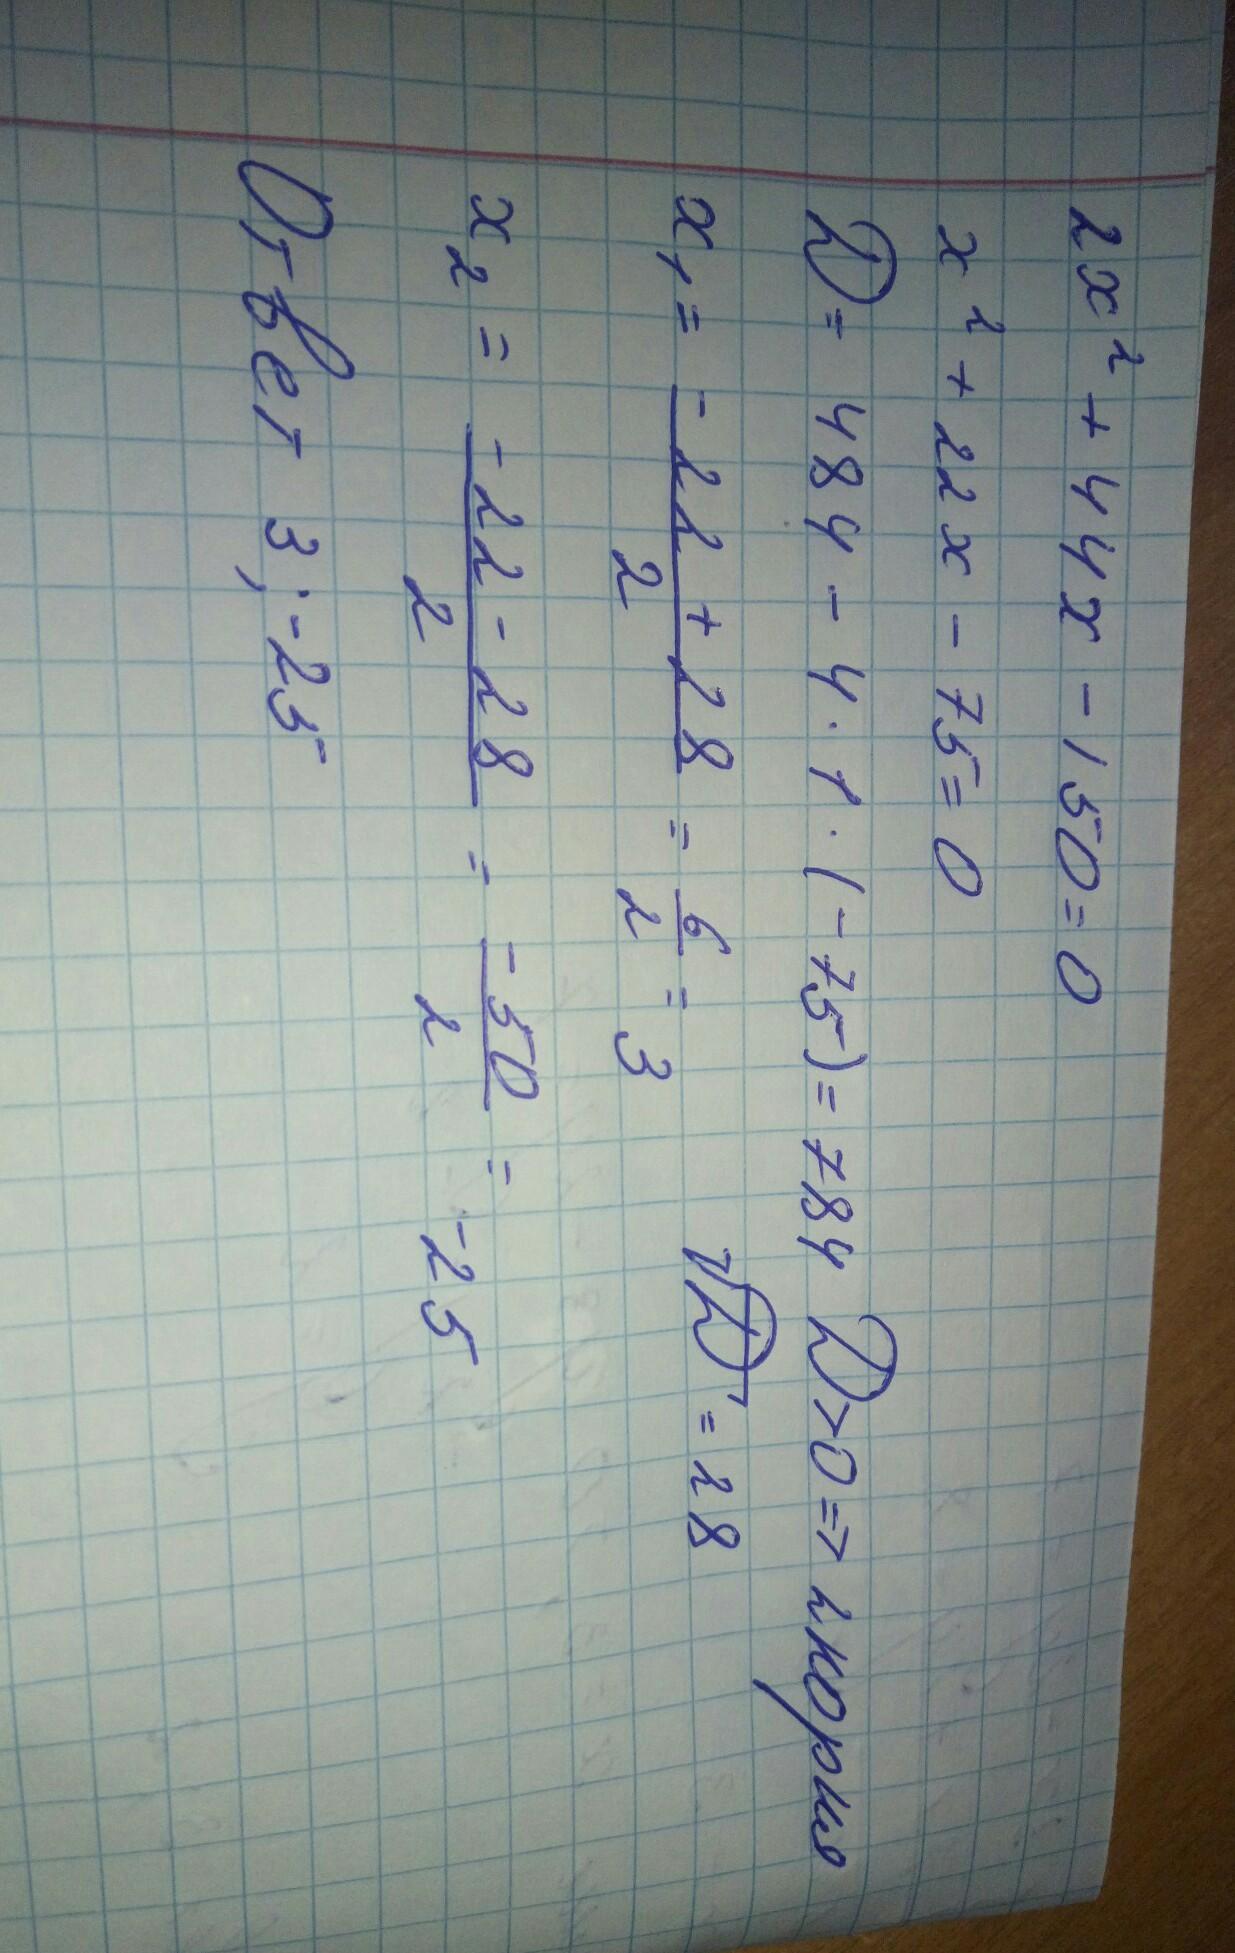 2x² + 44x - 150 = 0
x² + 22x - 75 = 0
D = 484 - 4 · 1 · (-75) = 784 D > 0 => 2 корня
x₁ = (-22 + 28)/2 = 6/2 = 3 √D = 28
x₂ = (-22 - 28)/2 = -50/2 = -25
Ответ 3; -25